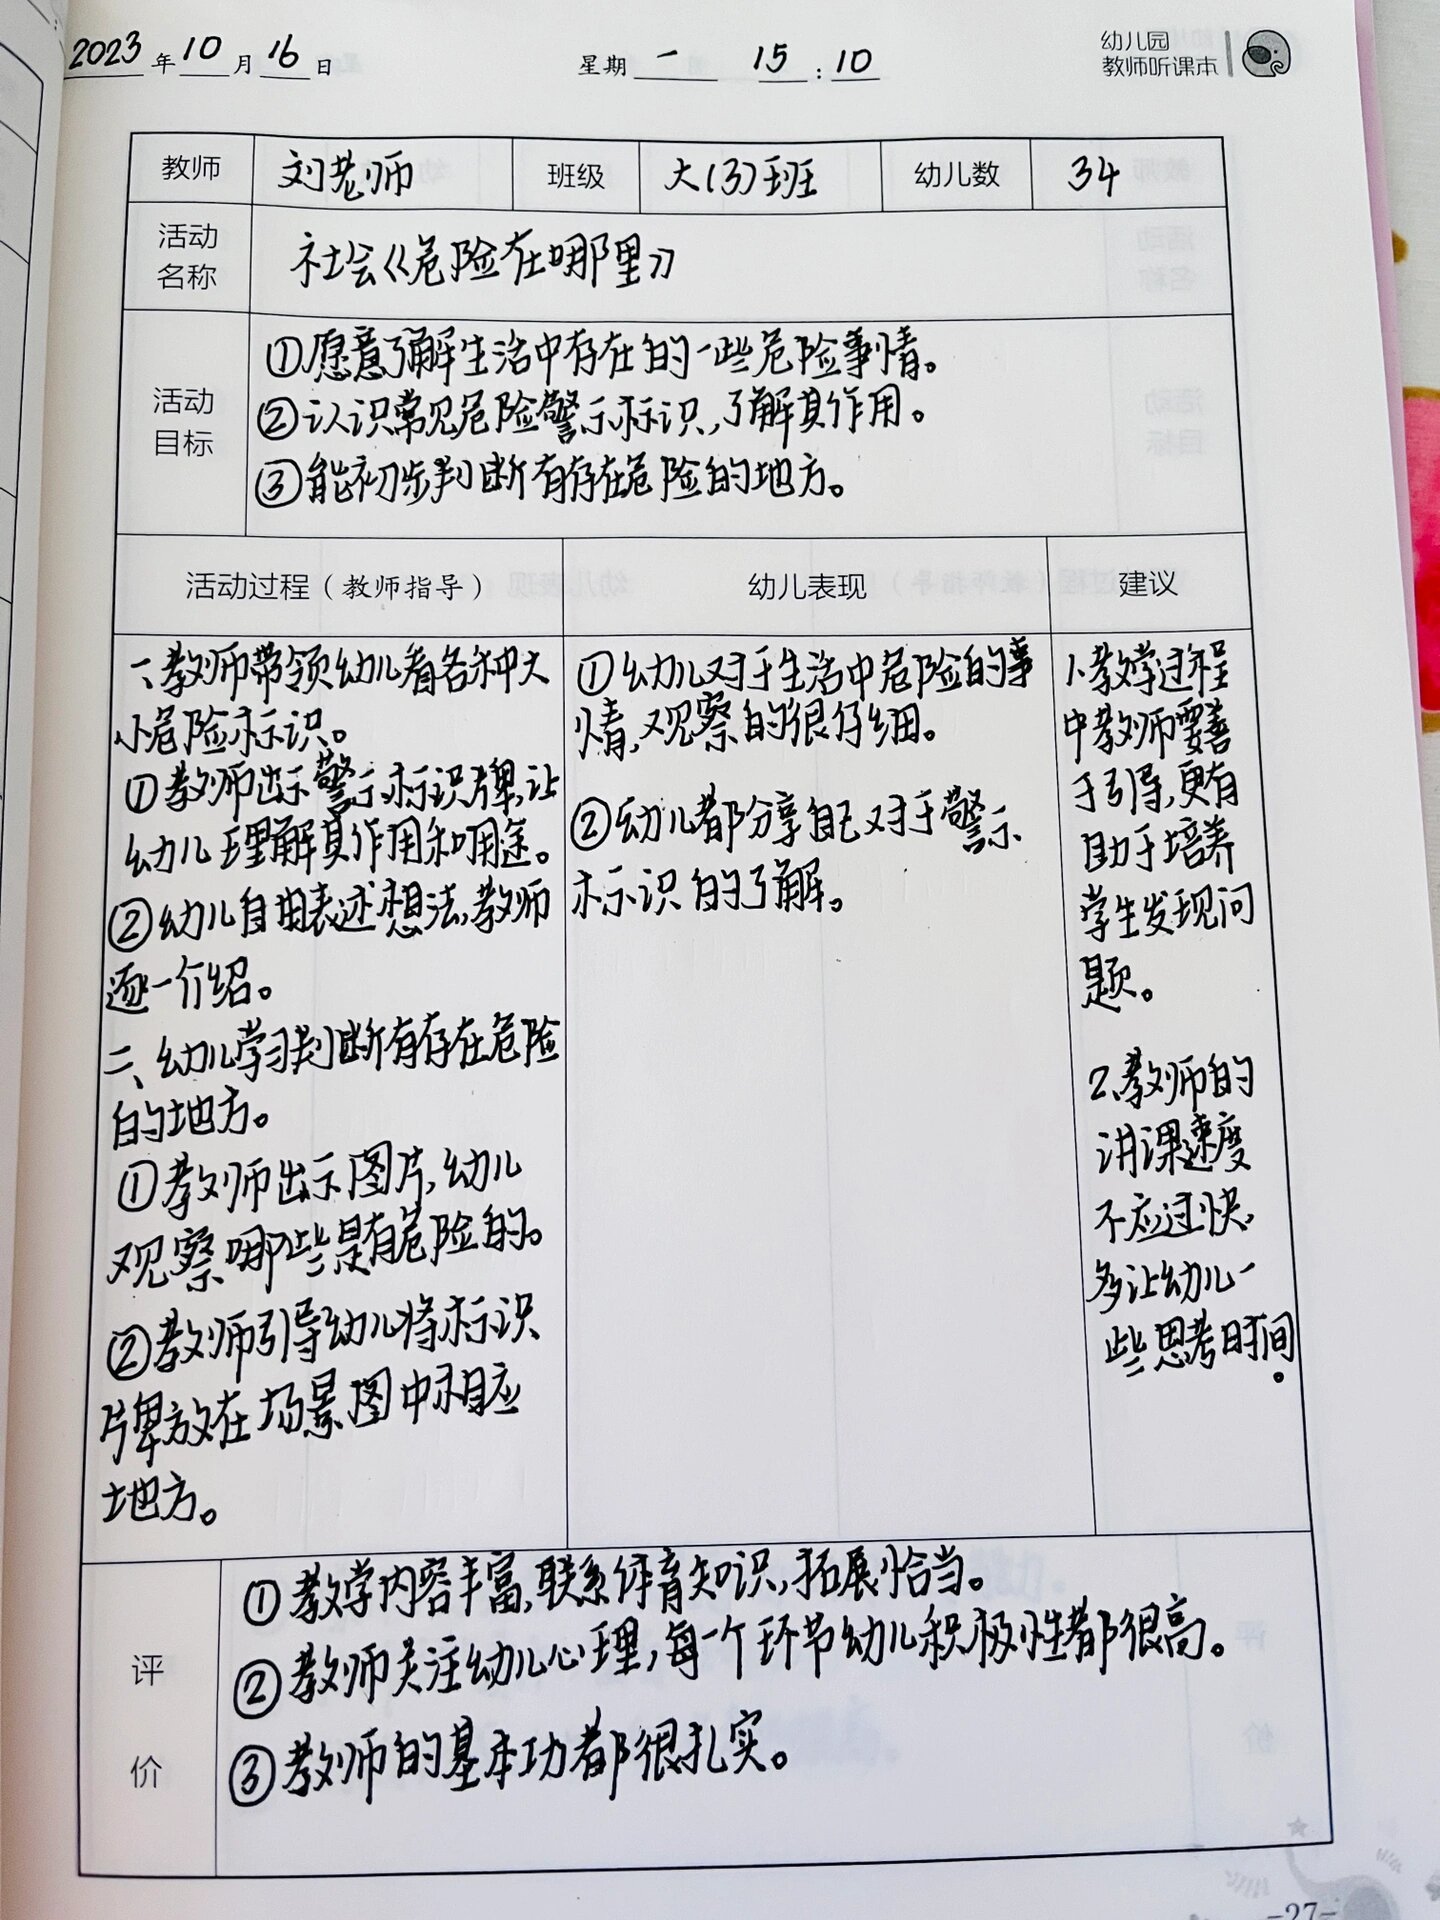 2023年10月16日 星期一 15:10
幼儿园
教师听课本
教师 刘老师 班级 大(3)班 幼儿数 34
活动
名称
社会《危险在哪里》
活动
目标
①愿意了解生活中存在的一些危险事情。
②认识常见危险警示标识,了解其作用。
③能初步判断有存在危险的地方。
活动过程(教师指导) 幼儿表现 建议
一、教师带领幼儿看各种大
小危险标识。
①教师出示警示标识牌,让
幼儿理解其作用和用途。
②幼儿自由表述想法,教师
逐一介绍。
二、幼儿学习判断有存在危险
的地方。
①教师出示图片,幼儿
观察哪些是有危险的。
②教师引导幼儿将标识
牌放在场景图中相应
地方。
①幼儿对于生活中危险的事
情,观察的很仔细。
②幼儿都分享自己对于警示
标识的了解。
1.教学过程
中教师要善
于引导,更有
助于培养
学生发现问
题。
2.教师的
讲课速度
不应过快,
多让幼儿一
些思考时间。
评
价
①教学内容丰富,联系体育知识,拓展恰当。
②教师关注幼儿心理,每一个环节幼儿积极性都很高。
③教师的基本功都很扎实。
-27-